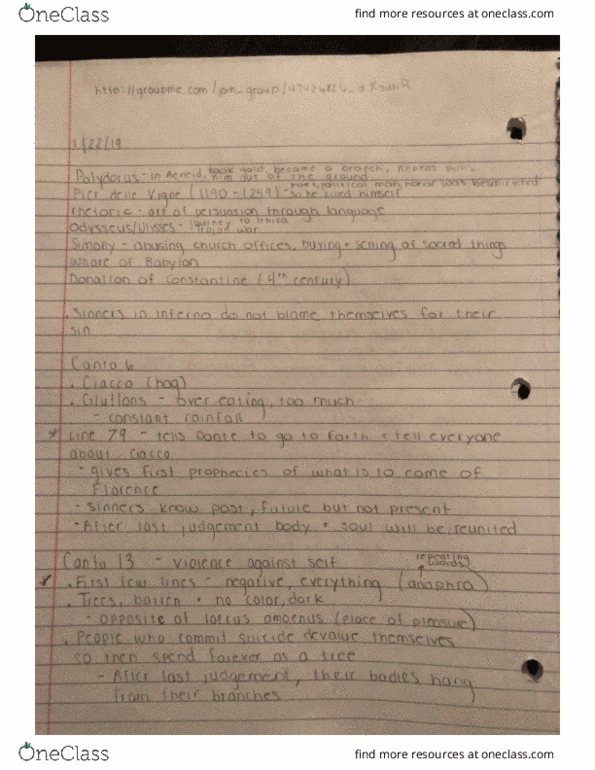 OneClass
find more resources at oneclass.com
1/22/19
took gold, became a branch, Aeneas pulls
Polydorus - in Aeneid, him out of the ground
poet, political man, honor was besmirched
Pier delle Vigne (1190-1249) - so he killed himself
rhetoric - art of persuasion through language
journey to Ithica
Odysseus/Ulysses - trojan war
Simony - abusing church offices, buying + selling of sacred things
Whore of Babylon
Donation of Constantine (4th century)
. Sinners in inferno do not blame themselves for their
sin
Canto 6
. Ciacco (hog)
. Gluttons - over eating, too much
- constant rainfall
* Line 79 - tells Dante to go to Earth + tell everyone
about Ciacco
- gives first prophecies of what is to come of
Florence
- Sinners know past, future but not present
- After last judgement body + soul will be reunited
Canto 13 - violence against self
repeating words
* . First few lines - negative, everything (anaphra)
. Trees, barren + no color, dark
- opposite of locus amoenus (place of pleasure)
. People who commit suicide devalue themselves
so then spend forever as a tree
- After last judgement, their bodies hang
from their branches
OneClass
find more resources at oneclass.com